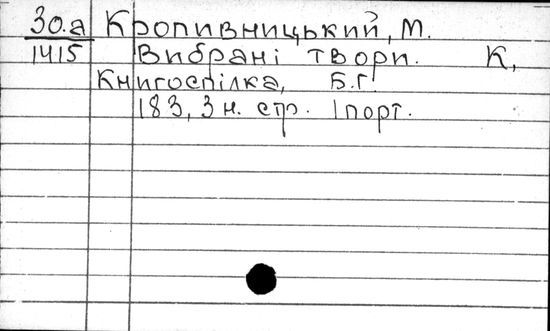 30.а Кропивницький, М.
1415 Вибрані твори. К,
Книгоспілка, Б.Г.
183, 3 н. стр. 1 порт.